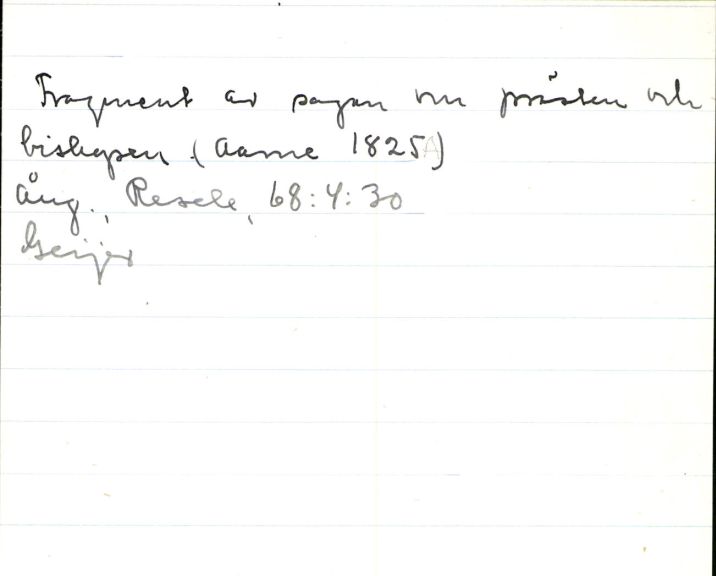 Fragment av sagan om prästen och
biskopen (Aarne 1825A)
Ång., Resele, 68:4:30
Geijer